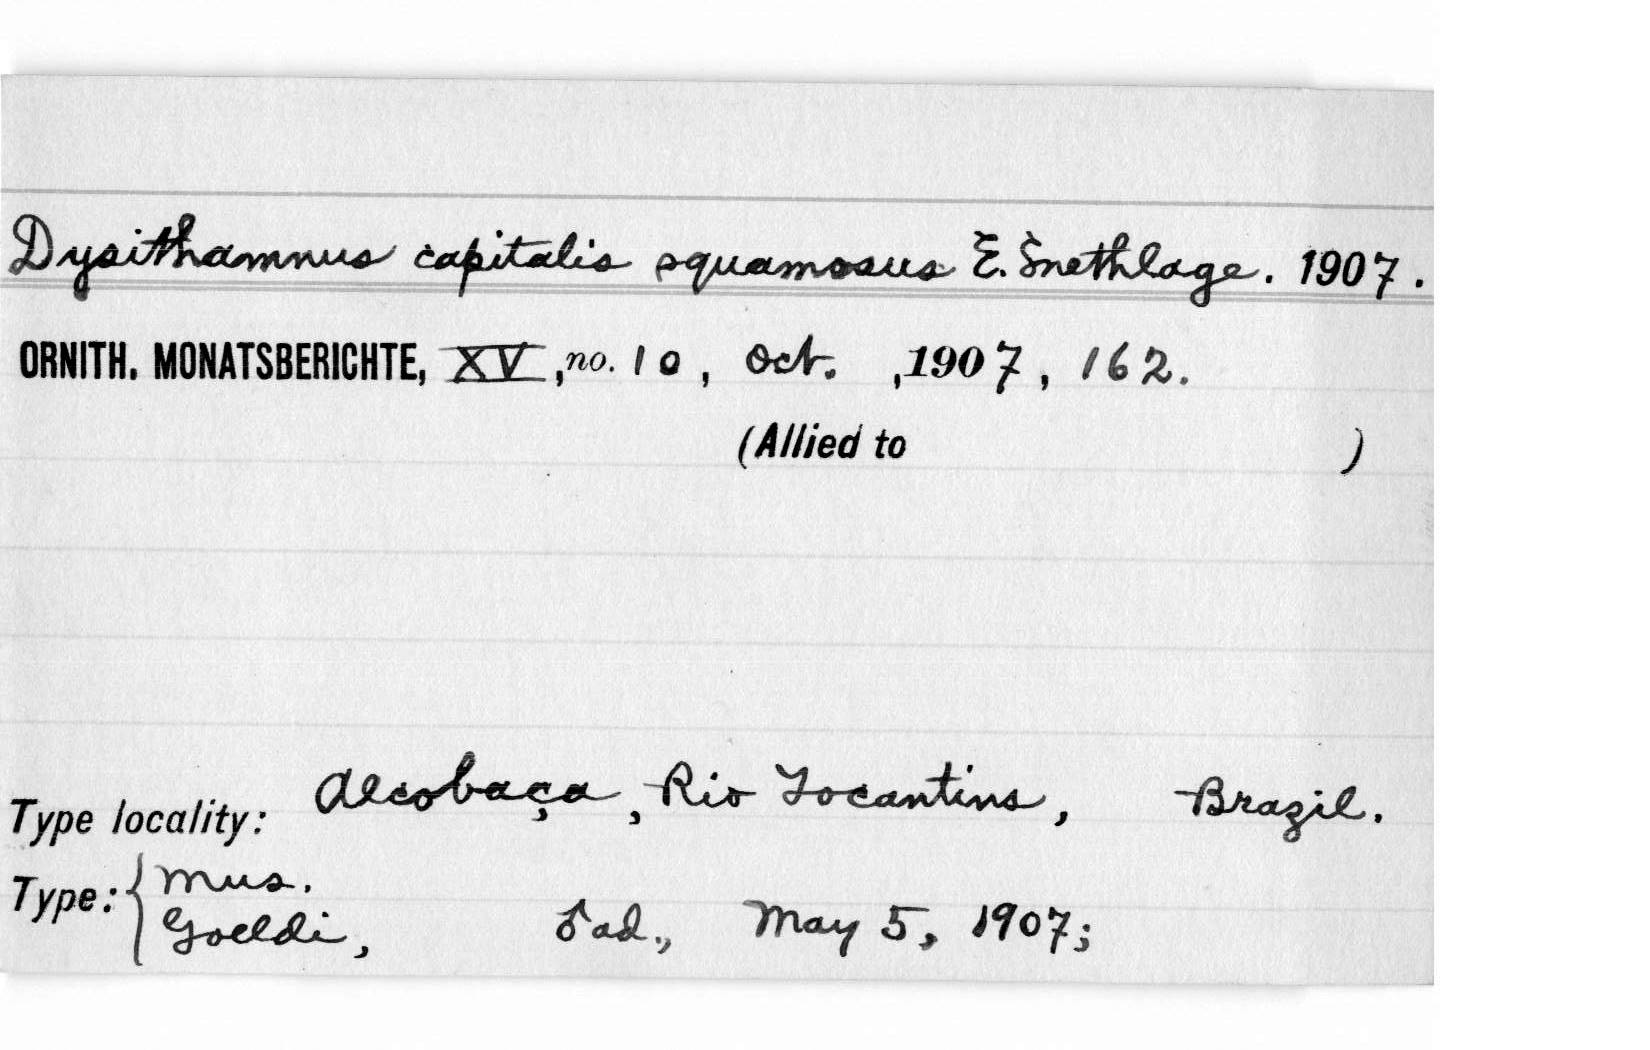 Dysithamnus capitalis squamosus E. Snethlage. 1907.
ORNITH. MONATSBERICHTE, XV, no. 10, Oct. , 1907, 162.
(Allied to )
Type locality: Alcobaça, Rio Tocantins, Brazil.
Type: { Mus.
Goeldi, ♂ ad., May 5, 1907;